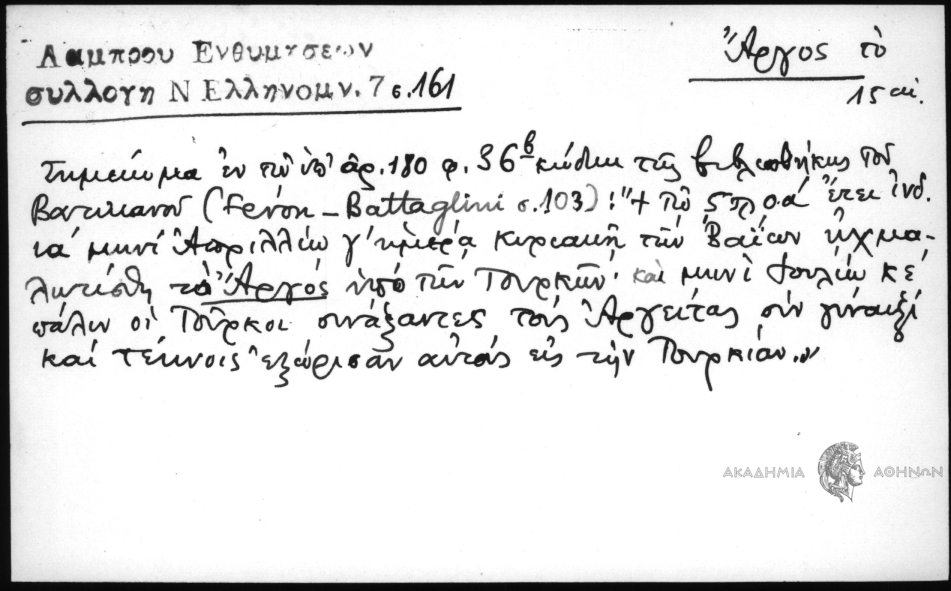 Λαμπρου Ενθυμησεων
συλλογη Ν Ελληνομν. 7 σ. 161
Ἄργος τὸ
15 αἰ.
Σημείωμα ἐν τῷ ὑπ' ἀρ. 180 φ. 36β κώδικι τῆς βιβλιοθήκης τοῦ
Βατικανοῦ (Feron - Battaglini σ. 103): "+ Τῷ ϛ ἔτει ἰνδ.
ια' μηνὶ Ἀπριλλίῳ γ' ἡμέρᾳ κυριακῇ τῶν Βαΐων ᾐχμα-
λωτίσθη τὸ Ἄργος ὑπὸ τῶν Τουρκῶν· καὶ μηνὶ Ἰουλίῳ κε'
πάλιν οἱ Τοῦρκοι συνάξαντες τοὺς Ἀργείτας σὺν γύναιξί
καί τέκνοις ἐξώρισαν αὐτοὺς εἰς τὴν Τουρκίαν."
ΑΚΑΔΗΜΙΑ ΑΘΗΝΩΝ